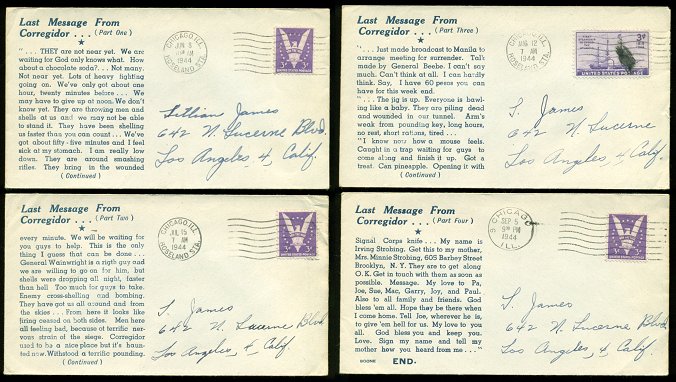 Last Message From
Corregidor . . . (Part One)
". . . THEY are not near yet. We are
waiting for God only knows what. How
about a chocolate soda?... Not many.
Not near yet. Lots of heavy fighting
going on. We've only got about one
hour, twenty minutes before... We
may have to give up at noon. We don't
know yet. They are throwing men and
shells at us and we may not be able
to stand it. They have been shelling
us faster than you can count... We've
got about fifty-five minutes and I feel
sick at my stomach. I am really low
down. They are around smashing
rifles. They bring in the wounded
(Continued)
CHICAGO, ILL.
JUN 8
AM
1944
ROSELAND STA.
Lillian James
642 N. Lucerne Blvd.
Los Angeles, 4, Calif.
Last Message From
Corregidor . . . (Part Three)
". . . Just made broadcast to Manila to
arrange meeting for surrender. Talk
made by General Beebe. I can't say
much. Can't think at all. I can hardly
think. Say, I have 60 pesos you can
have for this week end.
". . . The jig is up. Everyone is bawl-
ing like a baby. They are piling dead
and wounded in our tunnel. Arm's
weak from pounding key, long hours,
no rest, short rations, tired . . .
"I know now how a mouse feels.
Caught in a trap waiting for guys to
come along and finish it up. Got a
treat. Can pineapple. Opening it with
(Continued)
CHICAGO, ILL.
AUG 12
7 AM
1944
ROSELAND STA.
3¢
UNITED STATES POSTAGE
L. James
642 N. Lucerne Blvd.
Los Angeles, 4, Calif.
Last Message From
Corregidor . . . (Part Two)
every minute. We will be waiting for
you guys to help. This is the only
thing I guess that can be done...
General Wainwright is a rigth guy and
we are willing to go on for him, but
shells were dropping all night, faster
than hell Too much for guys to take.
Enemy cross-shelling and bombing.
They have got us all around and from
the skies . . . From here it looks like
firing ceased on both sides. Men here
all feeling bad, because of terrific ner-
vous strain of the siege. Corregidor
used to be a nice place but it's haun-
ted now. Withstood a terrific pounding.
(Continued)
CHICAGO, ILL.
JUL 15
7 AM
1944
ROSELAND STA.
L. James
642 N. Lucerne Blvd.
Los Angeles, 4, Calif.
Last Message From
Corregidor . . . (Part Four)
Signal Corps knife... My name is
Irving Strobing. Get this to my mother,
Mrs. Minnie Strobing, 605 Barbey Street
Brooklyn, N. Y. They are to get along
O.K. Get in touch with them as soon as
possible. Message. My love to Pa,
Joe, Sue, Mac, Garry, Joy, and Paul.
Also to all family and friends. God
bless 'em all. Hope they be there when
I come home. Tell Joe, wherever he is,
to give 'em hell for us. My love to you
all. God bless you and keep you.
Love. Sign my name and tell my
mother how you heard from me . . . "
BOONE
END.
CHICAGO
SEP 5
PM
1944
ILL.
L. James
642 N. Lucerne Blvd.
Los Angeles, 4, Calif.